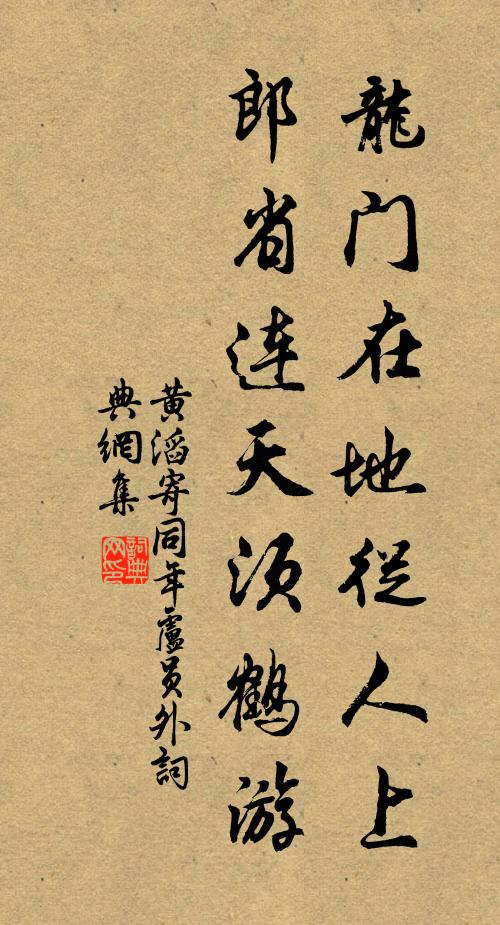 龍门在地從人上
郎省連天須鶴游
黄滔寄同年盧员外詞
典網集
詞典网印